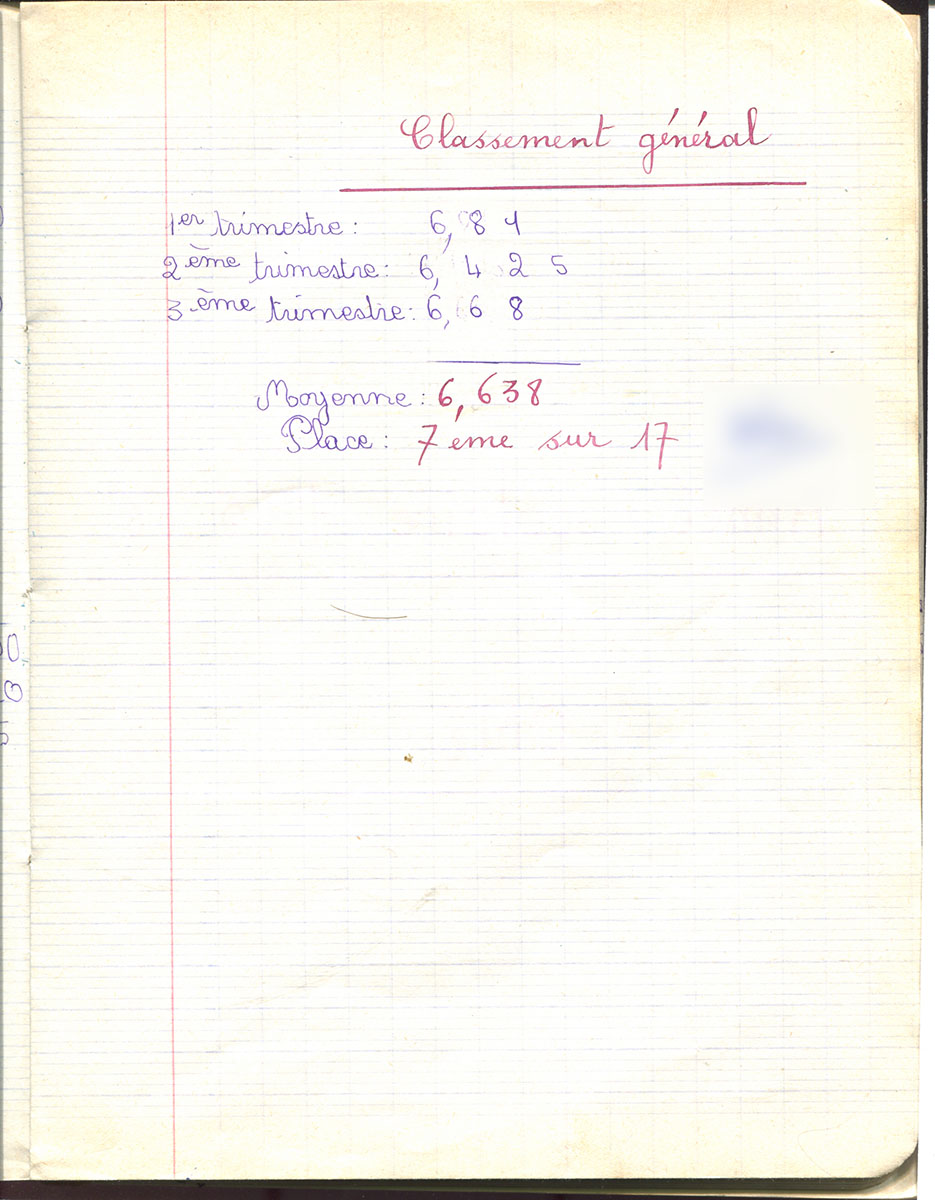 Classement général
1er trimestre : 6,84
2ème trimestre : 6,425
3ème trimestre : 6,68
Moyenne : 6,638
Place : 7ème sur 17